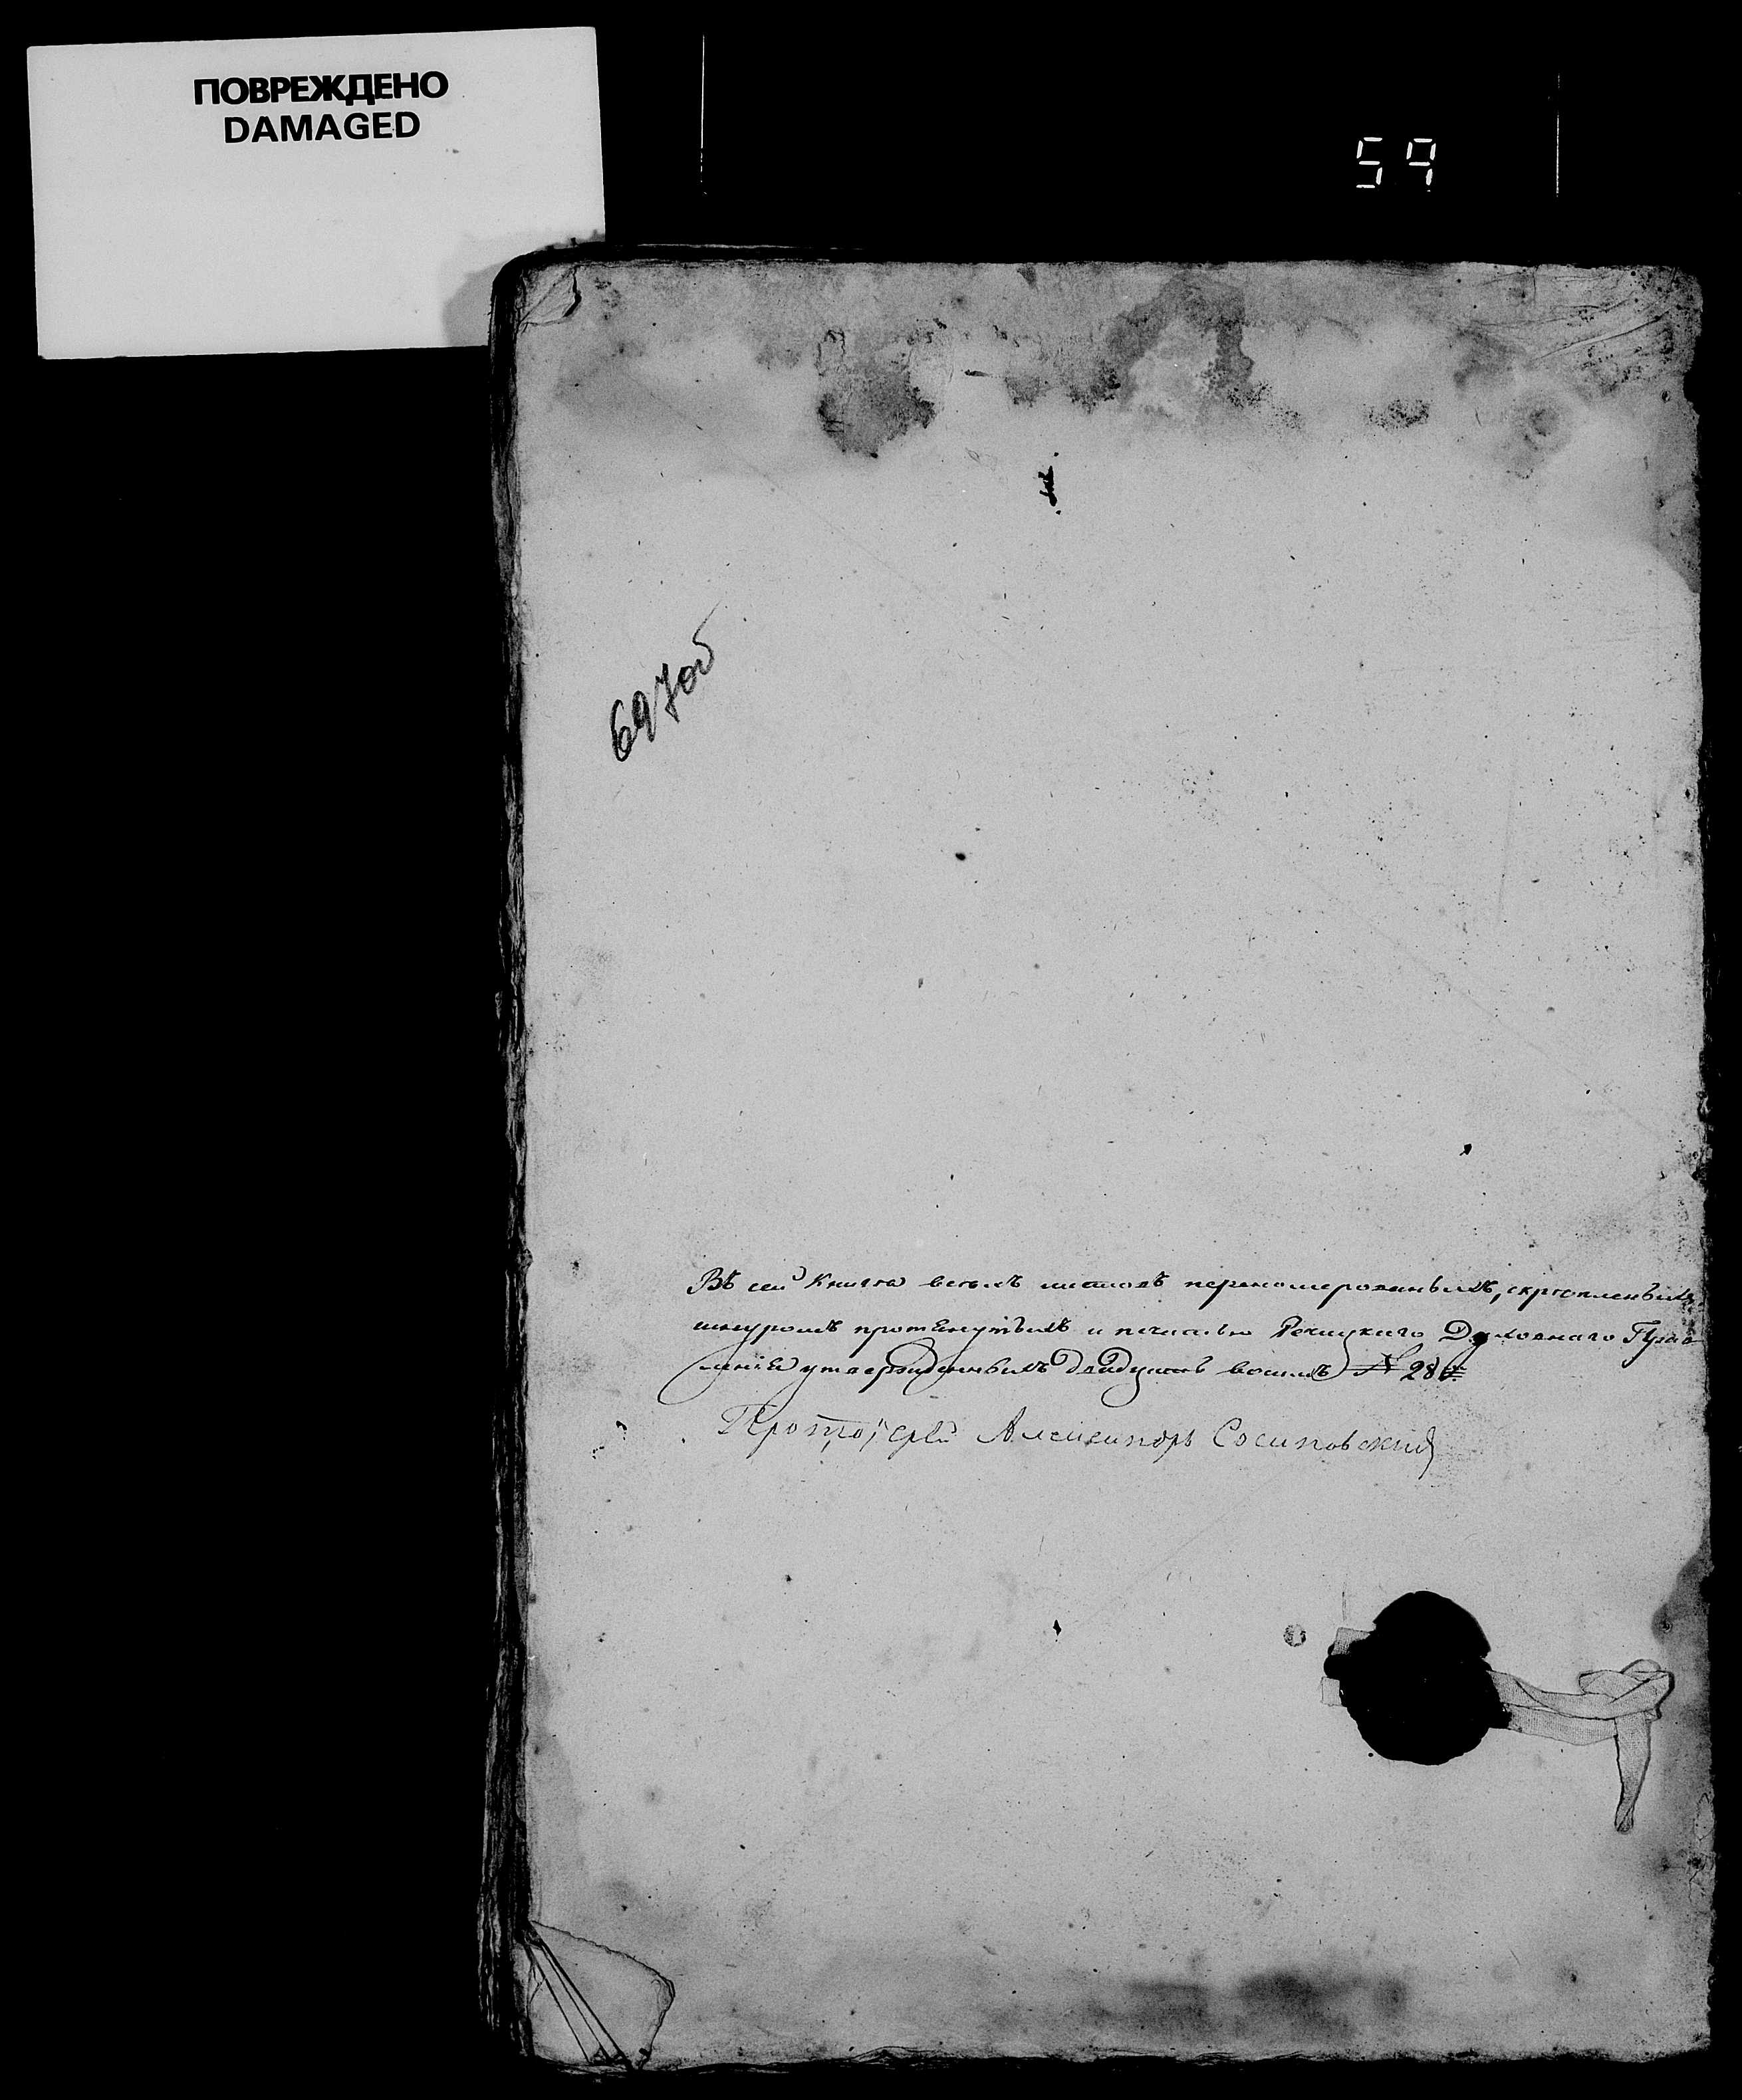 ПОВРЕЖДЕНО
DAMAGED
59
697об
Въ сей Книгѣ всѣхъ листовъ переномерованыхъ, скрѣпленыхъ,
шнуромъ протянутыхъ и печатью Речицкаго Духовнаго Прав
ленія утвержденныхъ Двадцать восемь № 28
Протоіерей Александръ